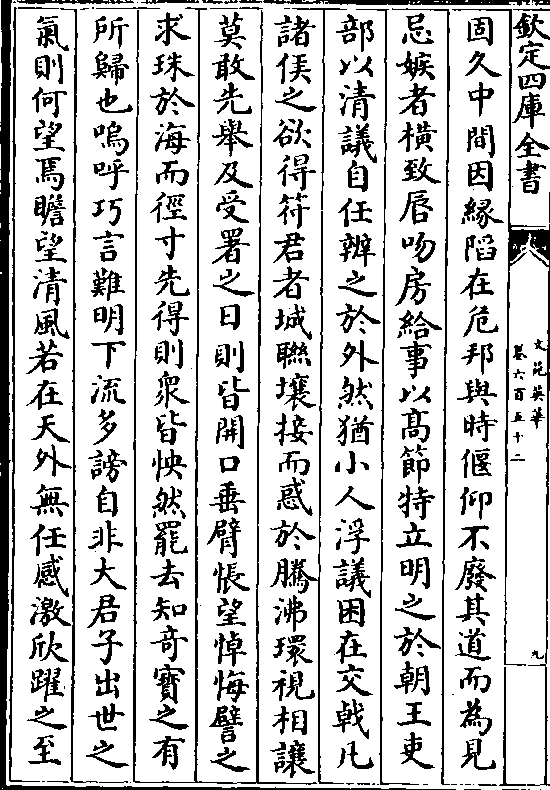 欽定四庫全書
文苑英華
卷六百五十二
九
固久中間因緣陷在危邦與時偃仰不廢其道而為見
忌嫉者橫致唇吻房給事以髙節特立明之於朝王吏
部以清議自任辨之於外然猶小人浮議困在交戟凡
諸侯之欲得符君者城聯壤接而惑於騰沸環視相讓
莫敢先舉及受署之日則皆開口垂臂悵望悼悔譬之
求珠於海而徑寸先得則衆皆怏然罷去知竒寳之有
所歸也嗚呼巧言難明下流多謗自非大君子出世之
氣則何望焉瞻望清風若在天外無任感激欣躍之至